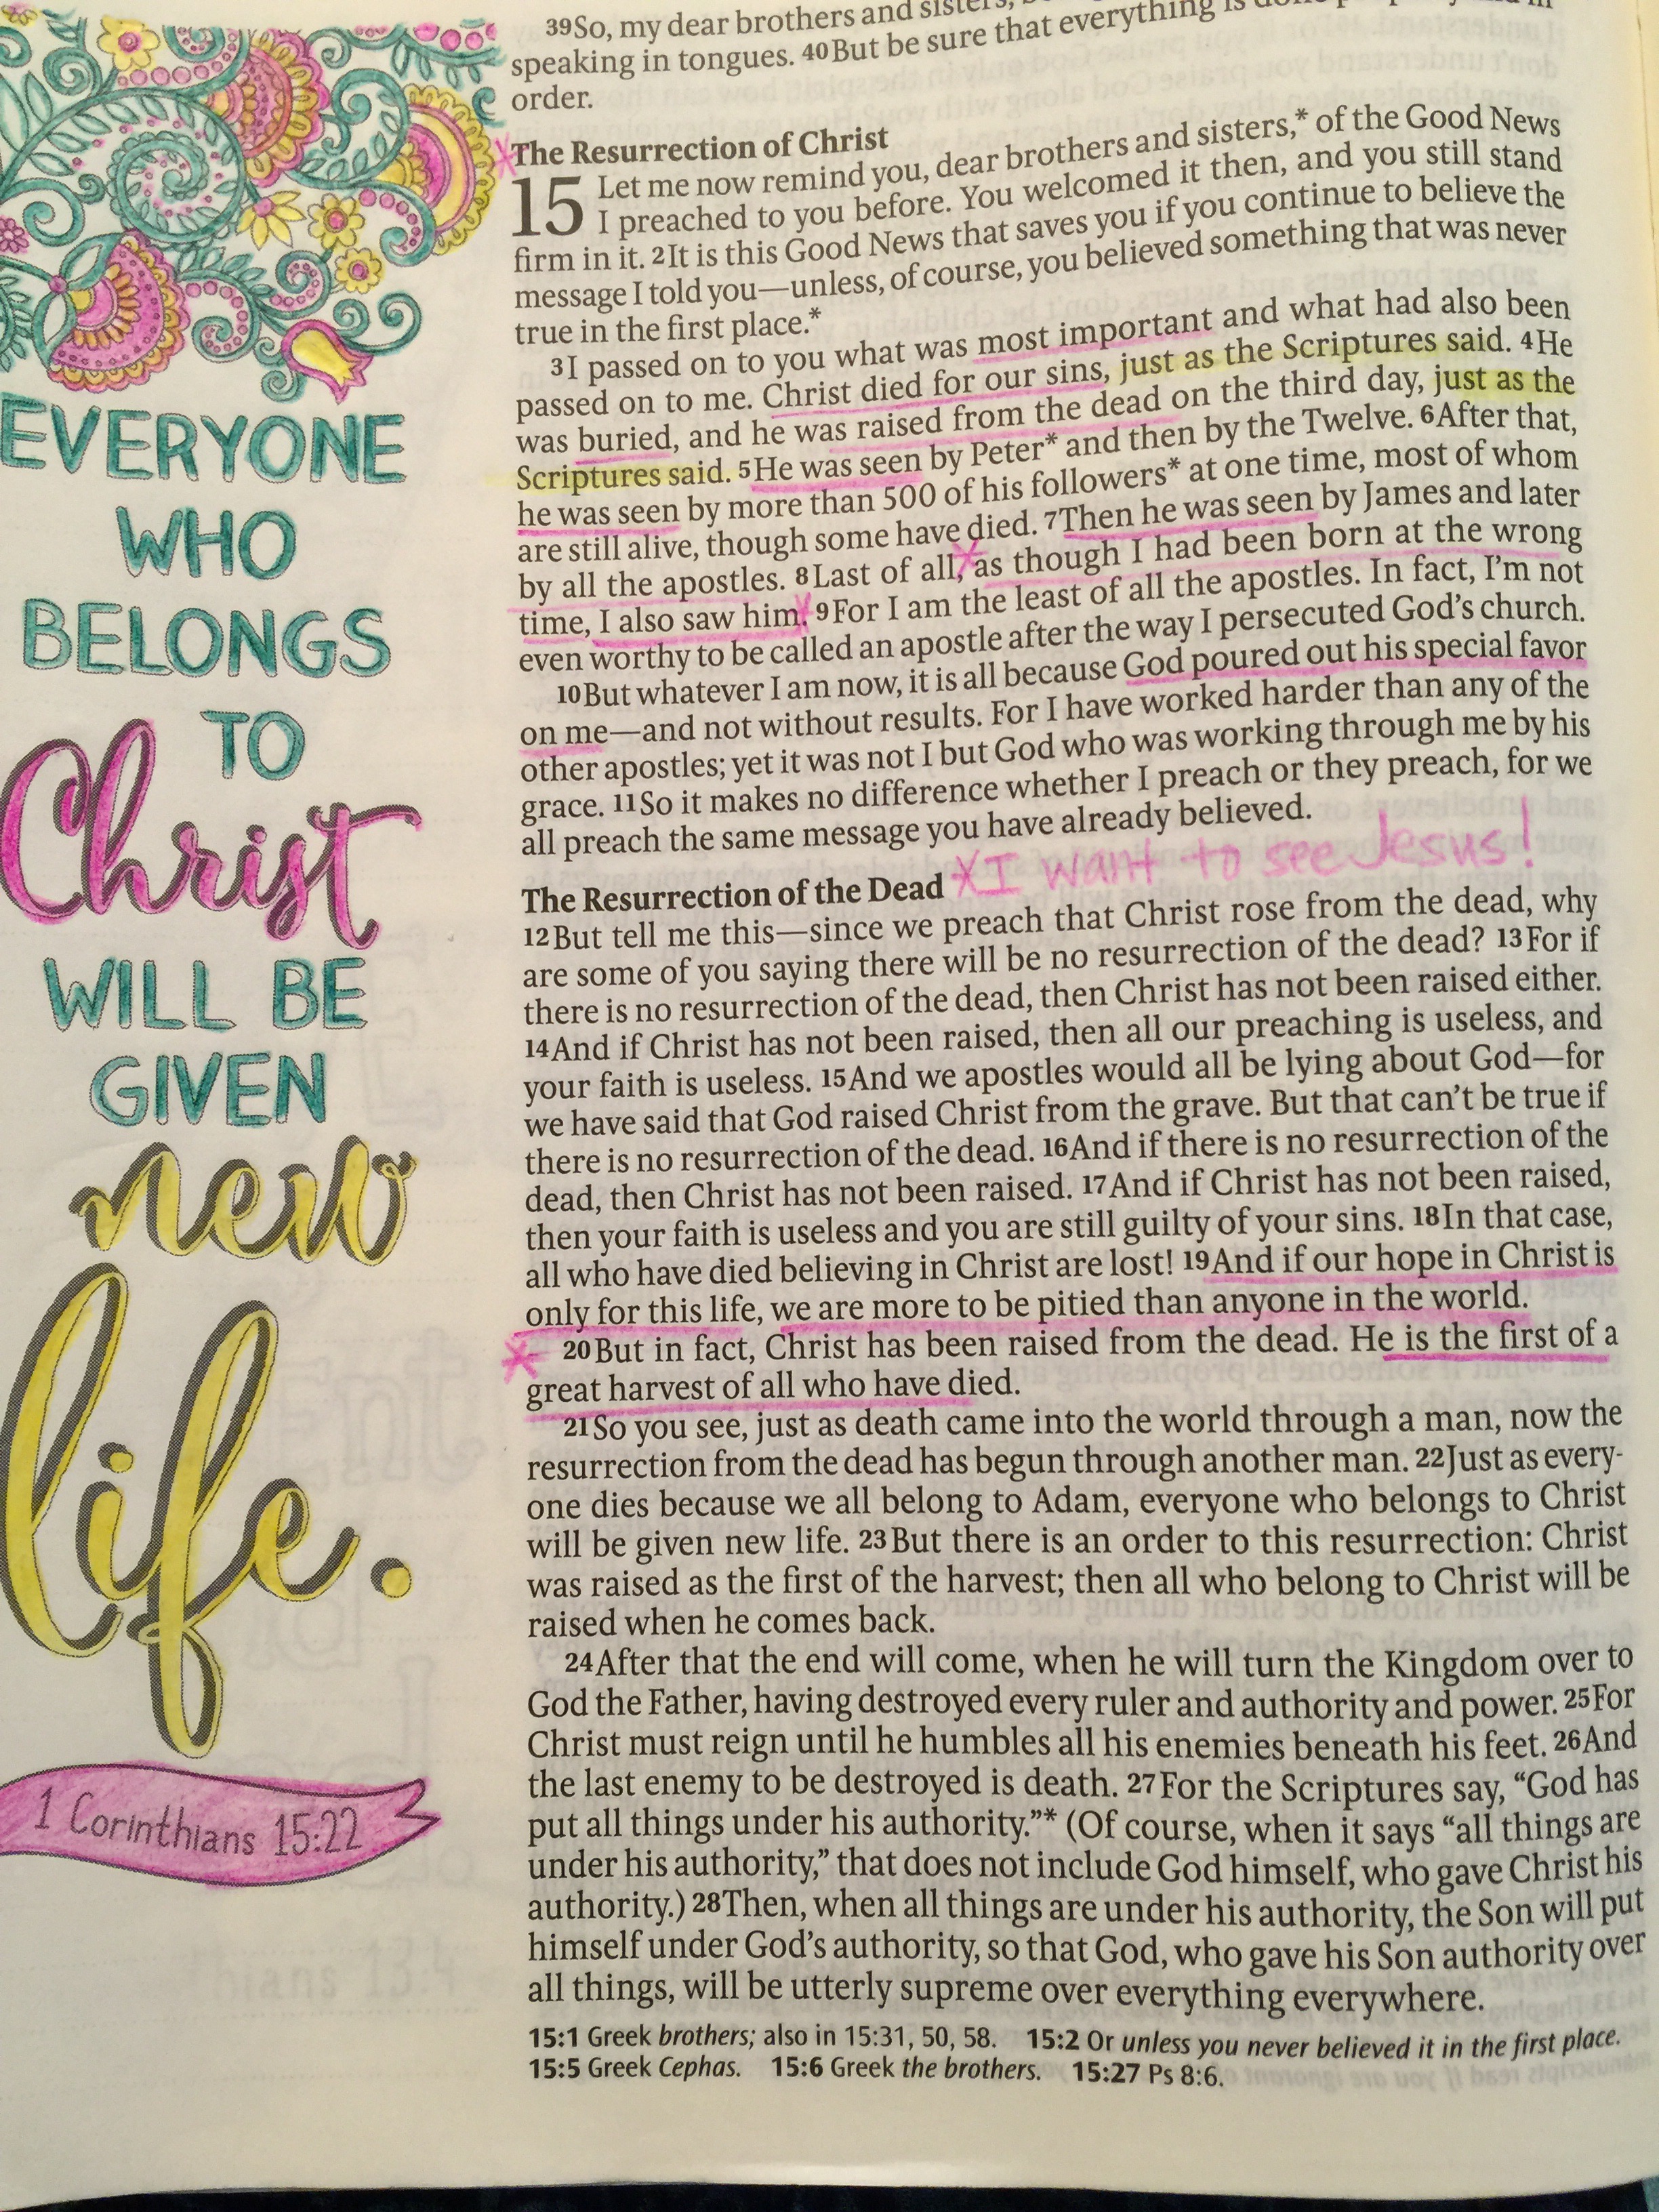 EVERYONE
WHO
BELONGS
TO
Christ
WILL BE
GIVEN
new
life.
1 Corinthians 15:22
39So, my dear brothers and sisters,
speaking in tongues. 40But be sure that everything is done
order.
The Resurrection of Christ
15 Let me now remind you, dear brothers and sisters,* of the Good News
I preached to you before. You welcomed it then, and you still stand
firm in it. 2It is this Good News that saves you if you continue to believe the
message I told you—unless, of course, you believed something that was never
true in the first place.*
3I passed on to you what was most important and what had also been
passed on to me. Christ died for our sins, just as the Scriptures said. 4He
was buried, and he was raised from the dead on the third day, just as the
Scriptures said. 5He was seen by Peter* and then by the Twelve. 6After that,
he was seen by more than 500 of his followers* at one time, most of whom
are still alive, though some have died. 7Then he was seen by James and later
by all the apostles. 8Last of all, as though I had been born at the wrong
time, I also saw him. 9For I am the least of all the apostles. In fact, I'm not
even worthy to be called an apostle after the way I persecuted God's church.
10But whatever I am now, it is all because God poured out his special favor
on me—and not without results. For I have worked harder than any of the
other apostles; yet it was not I but God who was working through me by his
grace. 11So it makes no difference whether I preach or they preach, for we
all preach the same message you have already believed.
I want to see Jesus!
The Resurrection of the Dead
12But tell me this—since we preach that Christ rose from the dead, why
are some of you saying there will be no resurrection of the dead? 13For if
there is no resurrection of the dead, then Christ has not been raised either.
14And if Christ has not been raised, then all our preaching is useless, and
your faith is useless. 15And we apostles would all be lying about God—for
we have said that God raised Christ from the grave. But that can't be true if
there is no resurrection of the dead. 16And if there is no resurrection of the
dead, then Christ has not been raised. 17And if Christ has not been raised,
then your faith is useless and you are still guilty of your sins. 18In that case,
all who have died believing in Christ are lost! 19And if our hope in Christ is
only for this life, we are more to be pitied than anyone in the world.
20But in fact, Christ has been raised from the dead. He is the first of a
great harvest of all who have died.
21So you see, just as death came into the world through a man, now the
resurrection from the dead has begun through another man. 22Just as every-
one dies because we all belong to Adam, everyone who belongs to Christ
will be given new life. 23But there is an order to this resurrection: Christ
was raised as the first of the harvest; then all who belong to Christ will be
raised when he comes back.
24After that the end will come, when he will turn the Kingdom over to
God the Father, having destroyed every ruler and authority and power. 25For
Christ must reign until he humbles all his enemies beneath his feet. 26And
the last enemy to be destroyed is death. 27For the Scriptures say, “God has
put all things under his authority.”* (Of course, when it says “all things are
under his authority,” that does not include God himself, who gave Christ his
authority.) 28Then, when all things are under his authority, the Son will put
himself under God's authority, so that God, who gave his Son authority over
all things, will be utterly supreme over everything everywhere.
15:1 Greek brothers; also in 15:31, 50, 58. 15:2 Or unless you never believed it in the first place.
15:5 Greek Cephas. 15:6 Greek the brothers. 15:27 Ps 8:6.